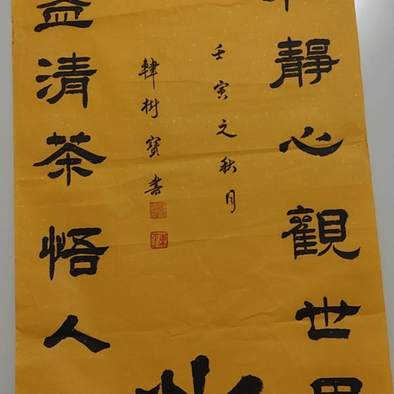 靜心觀世界
壬寅之秋月
韓树寶書
清茶悟人